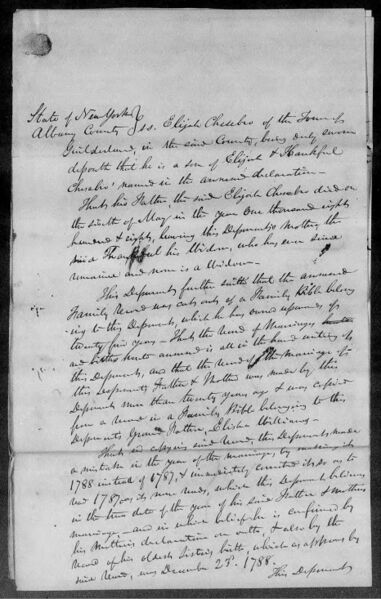 State of New York }
Albany County } ss. Elijah Chesebro of the Town of
Guilderland, in the said County, being duly sworn
deposeth that he is a son of Elijah & Thankful
Chesebro named in the annexed declaration -
That his Father the said Elijah Chesebro died on
the of May in the year One thousand eight
hundred & eight, leaving this Deponents Mother the
said Thankful his Widow, who has ever since
remained and now is a Widow -
This Deponent further saith that the annexed
Family Record was cut out of a Family Bible belong
ing to this Deponent, which he has owned upwards of
twenty five years - That the Record of Marriages
and births hereto annexed is all in the hand writing of
this Deponent, and that the Record of the marriage of
this Deponents Father & Mother was made by this
Deponent more than twenty years ago & was copied
from a Record in a Family Bible belonging to this
Deponents Grand Father, Elisha Williams -
That in copying said Record this Deponent made
a mistake in the year of the marriage, by making it
1788 instead of 1787, & immediately corrected it so as to
read 1787, as it now reads, which this Deponent believes
is the true date of the year of his said Father & Mothers
marriage, - and in which belief he is confirmed by
his Mothers declaration on oath, & also by the
Record of his oldest Sisters birth, which as appears by
said Record, was December 23d. 1788.
This Deponent